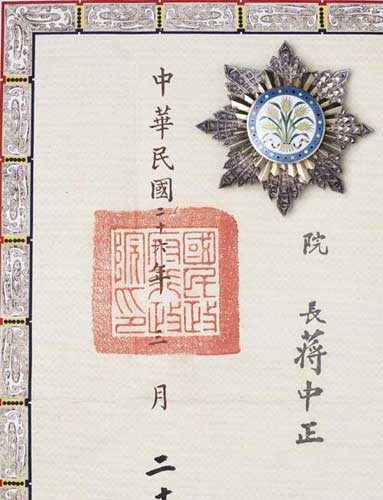 院長蔣中正
中華民國二十六年三月二十
國民政府行政院印